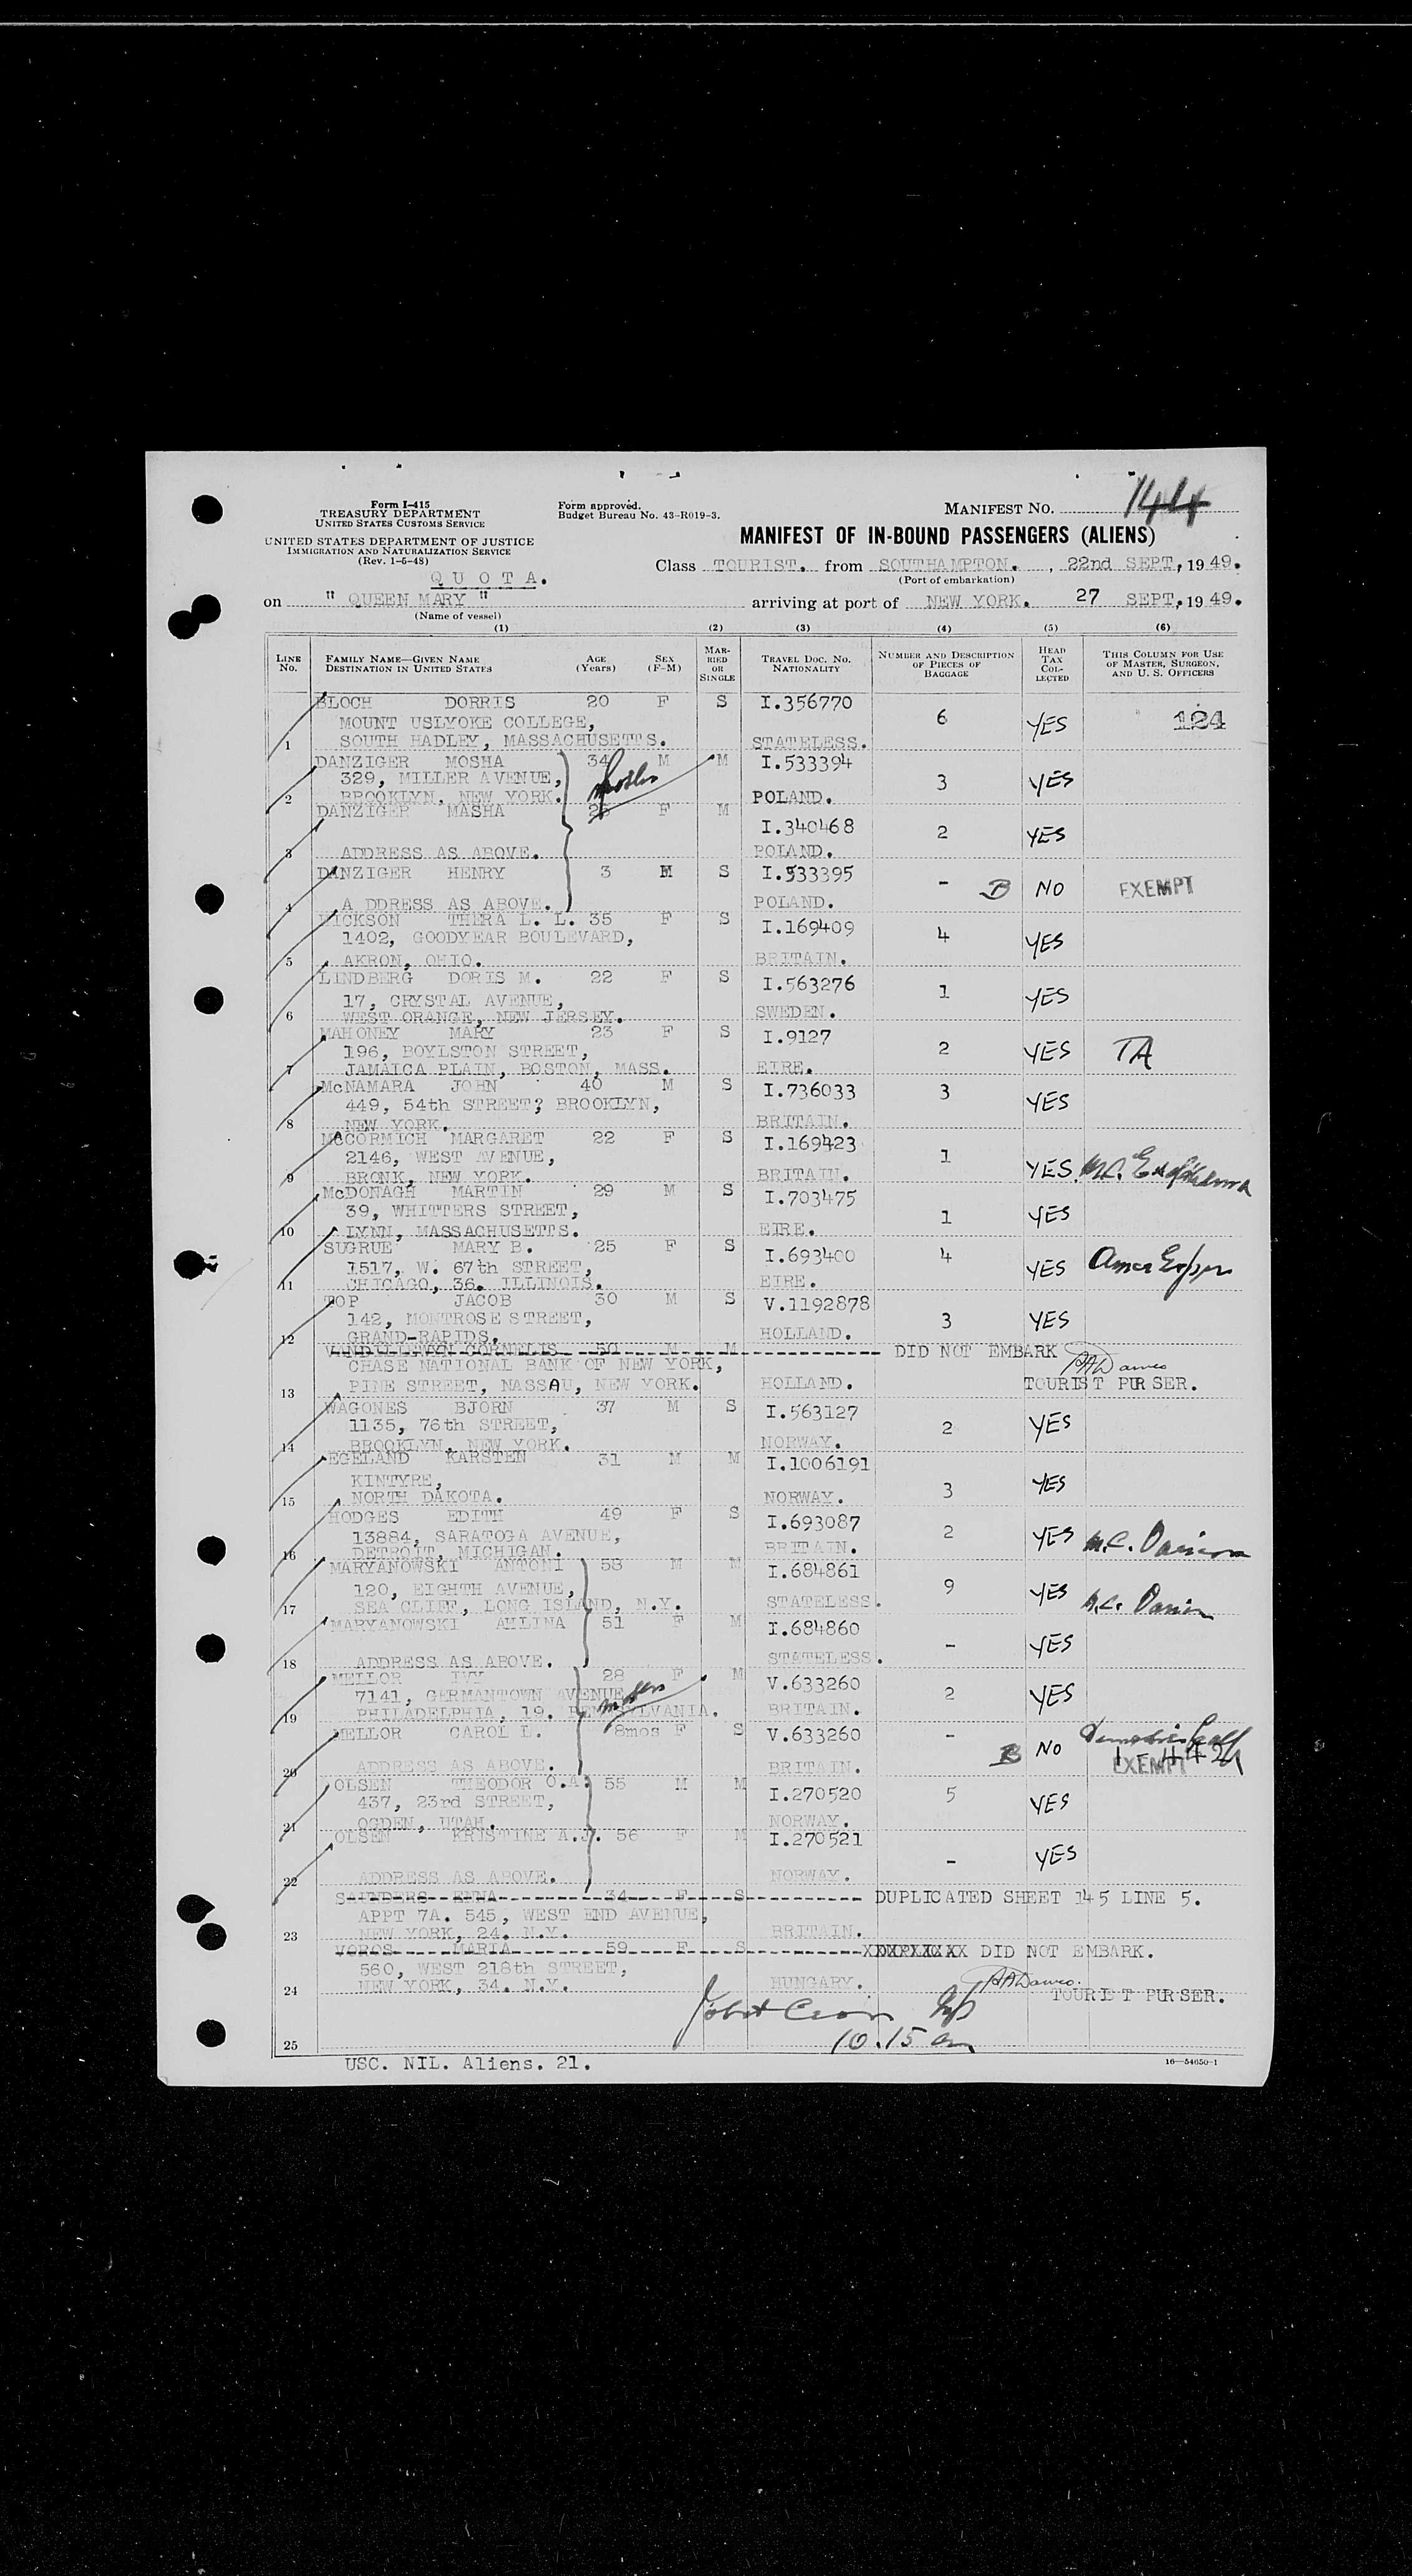 Form I-415
TREASURY DEPARTMENT
UNITED STATES CUSTOMS SERVICE
UNITED STATES DEPARTMENT OF JUSTICE
IMMIGRATION AND NATURALIZATION SERVICE
(Rev. 1-6-48)
Form approved.
Budget Bureau No. 43-R019-3.
MANIFEST NO. 144
MANIFEST OF IN-BOUND PASSENGERS (ALIENS)
Q U O T A.
Class TOURIST. from SOUTHAMPTON. , 22nd SEPT, 19 49.
(Port of embarkation)
on " QUEEN MARY " arriving at port of NEW YORK. 27 SEPT, 19 49.
(Name of vessel)
(1) (2) (3) (4) (5) (6)
LINE NO. FAMILY NAME—GIVEN NAME DESTINATION IN UNITED STATES AGE (Years) SEX (F-M) MARRIED OR SINGLE TRAVEL DOC. NO. NATIONALITY NUMBER AND DESCRIPTION OF PIECES OF BAGGAGE HEAD TAX COLLECTED THIS COLUMN FOR USE OF MASTER, SURGEON, AND U. S. OFFICERS
BLOCH DORRIS 20 F S I.356770
MOUNT USLYOKE COLLEGE, 6 YES 124
1 SOUTH HADLEY, MASSACHUSETTS. STATELESS.
DANZIGER MOSHA 34 M M I.533394
329, MILLER AVENUE, 3 YES
2 BROOKLYN, NEW YORK. POLAND.
DANZIGER MASHA F M
I.340468 2 YES
3 ADDRESS AS ABOVE. POLAND.
DANZIGER HENRY 3 M S I.533395
- B NO EXEMPT
4 A DDRESS AS ABOVE. POLAND.
DICKSON THERA L. L. 35 F S I.169409
1402, GOODYEAR BOULEVARD, 4 YES
5 AKRON, OHIO. BRITAIN.
LINDBERG DORIS M. 22 F S I.563276
17, CRYSTAL AVENUE, 1 YES
6 WEST ORANGE, NEW JERSEY. SWEDEN.
MAHONEY MARY 23 F S I.9127
196, BOYLSTON STREET, 2 YES TA
7 JAMAICA PLAIN, BOSTON, MASS. EIRE.
McNAMARA JOHN 40 M S I.736033 3
449, 54th STREET; BROOKLYN, YES
8 NEW YORK. BRITAIN.
McCORMICH MARGARET 22 F S I.169423
2146, WEST AVENUE, 1 YES.
9 BRONK, NEW YORK. BRITAIN.
McDONAGH MARTIN 29 M S I.703475
39, WHITTERS STREET, 1 YES
10 LYNN, MASSACHUSETTS. EIRE.
SUGRUE MARY B. 25 F S I.693400 4
1517, W. 67th STREET, YES
11 CHICAGO, 36. ILLINOIS. EIRE.
TOP JACOB 30 M S V.1192878
142, MONTROSE STREET, 3 YES
12 GRAND-RAPIDS. HOLLAND.
CORNELIS 50 M M DID NOT EMBARK
CHASE NATIONAL BANK OF NEW YORK,
13 PINE STREET, NASSAU, NEW YORK. HOLLAND. TOURIST PURSER.
WAGONES BJORN 37 M S I.563127
1135, 76th STREET, 2 YES
14 BROOKLYN, NEW YORK. NORWAY.
EGELAND KARSTEN 31 M M I.1006191
KINTYRE, YES
15 NORTH DAKOTA. NORWAY. 3
HODGES EDITH 49 F S I.693087
13884, SARATOGA AVENUE, 2 YES
16 DETROIT, MICHIGAN. BRITAIN.
MARYANOWSKI ANTONI 58 M M I.684861
120, EIGHTH AVENUE, 9 YES
17 SEA CLIFF, LONG ISLAND, N.Y. STATELESS.
MARYANOWSKI 51 F M I.684860
- YES
18 ADDRESS AS ABOVE. STATELESS.
MELLOR IVY 28 F M V.633260
7141, GERMANTOWN AVENUE 2 YES
19 PHILADELPHIA, 19. PENNSYLVANIA. BRITAIN.
MELLOR CAROL L. 8mos F S V.633260 -
B NO EXEMPT
20 ADDRESS AS ABOVE. BRITAIN.
OLSEN THEODOR O.A. 55 M M I.270520 5
437, 23rd STREET, YES
21 OGDEN, UTAH. NORWAY.
OLSEN KRISTINE A.J. 56 F M I.270521
- YES
22 ADDRESS AS ABOVE. NORWAY.
SAUNDERS ENNA 34 F S DUPLICATED SHEET 145 LINE 5.
APPT 7A. 545, WEST END AVENUE,
23 NEW YORK, 24. N.Y. BRITAIN.
VOROS MARIA 59 F S DID NOT EMBARK.
560, WEST 218th STREET,
24 NEW YORK, 34. N.Y. HUNGARY. TOURIST PURSER.
10.15 am
25
USC. NIL. Aliens. 21.
16—54650-1